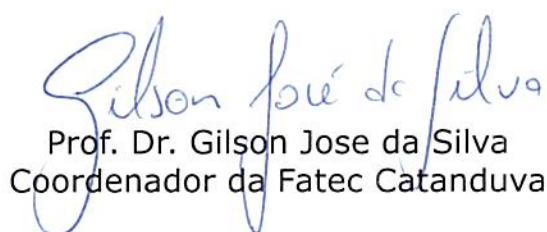 Gilson José da Silva
Prof. Dr. Gilson Jose da Silva
Coordenador da Fatec Catanduva